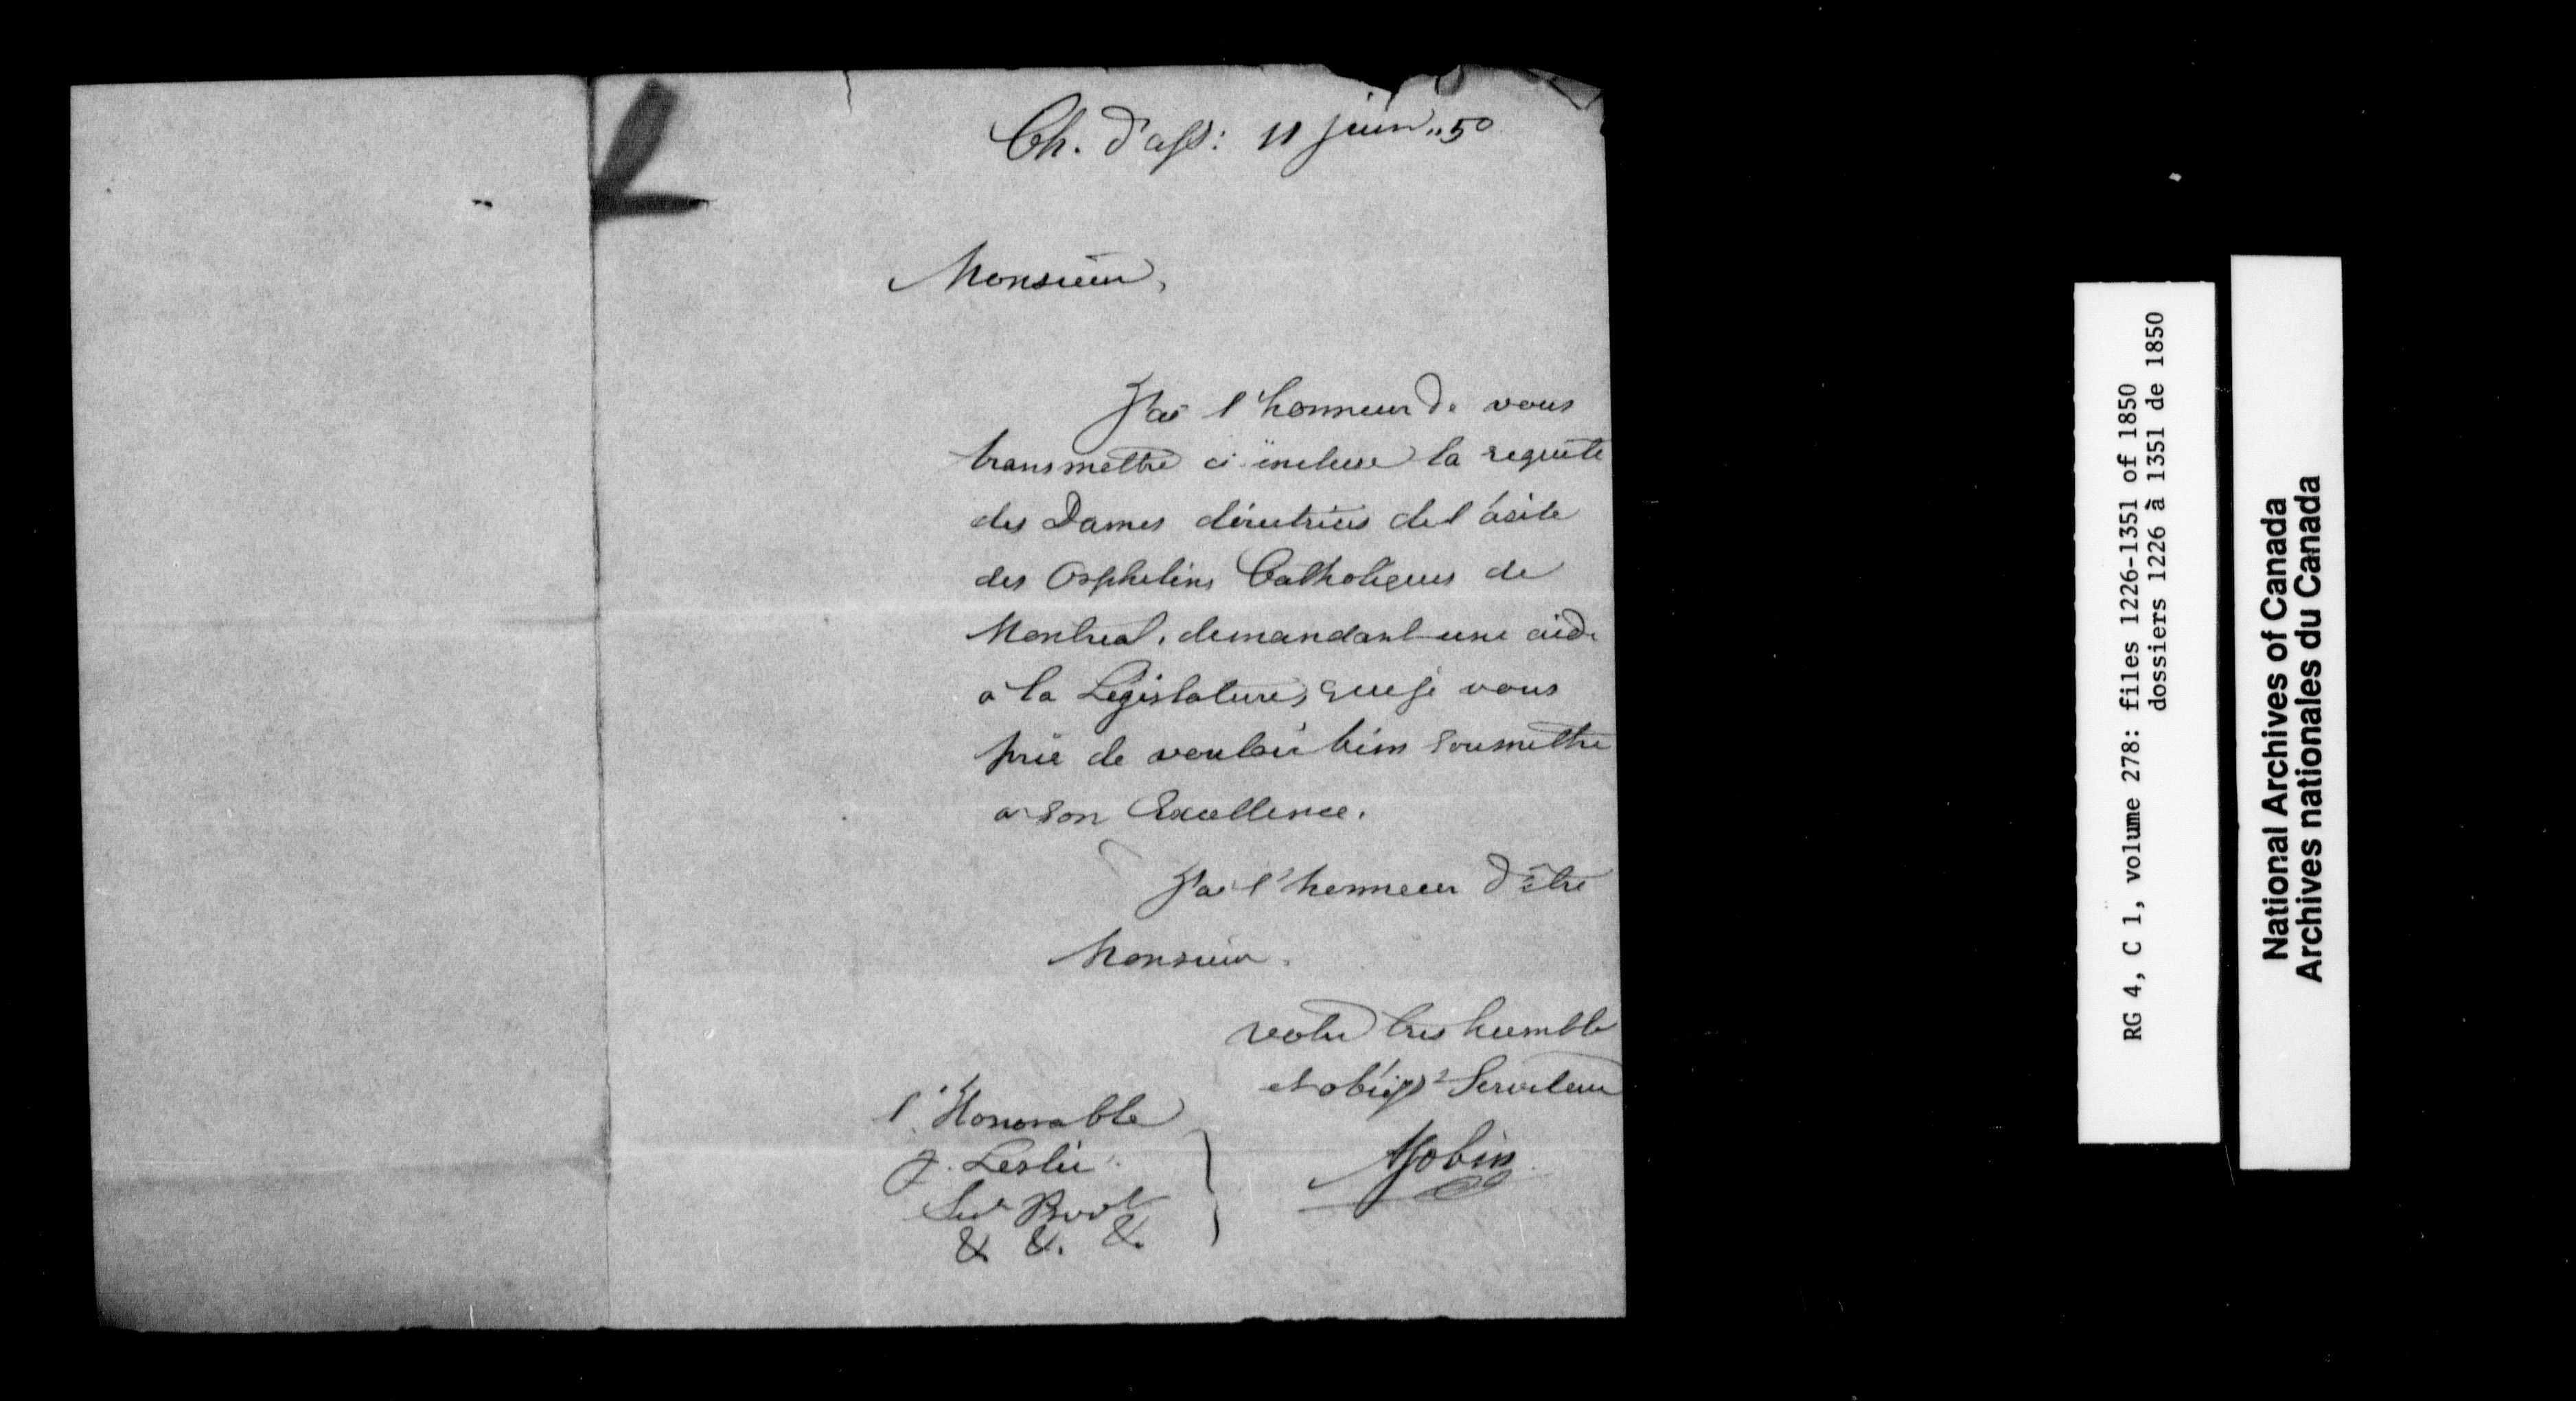 Ch. d'ass: 11 juin "50
Monsieur,
J'ai l'honneur de vous
transmettre ci-incluse la requête
des Dames directrices de l'asile
des Orphelins Catholiques de
Montreal, demandant une aide
à la Législature, que je vous
prie de vouloir bien soumettre
à Son Excellence.
J'ai l'honneur d'être
Monsieur.
votre tres humble
et obéiss^t Serviteur
A Jobin
l'Honorable
J. Leslie
Sec Provl
& &. &.
RG 4, C 1, volume 278: files 1226-1351 of 1850
dossiers 1226 à 1351 de 1850
National Archives of Canada
Archives nationales du Canada